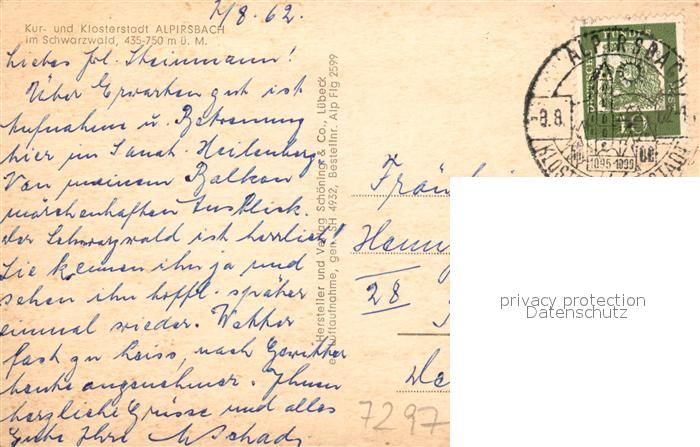 7/8. 62.
Kur- und Klosterstadt ALPIRSBACH
im Schwarzwald, 435-750 m ü. M.
Liebes Frl. Steinmann!
Über Erwarten gut ist
Aufnahme u. Betreuung
hier im Sanat. Heilenberg.
Von meinem Balkon
märchenhaften Ausblick.
der Schwarzwald ist herrlich!
Sie kennen ihn ja und
sehen ihn hoffl. später
einmal wieder. Wetter
fast zu heiss, nach Gewitter
heute angenehmer. Ihnen
herzliche Grüsse und alles
Gute Ihre
Hersteller und Verlag Schöning & Co., Lübeck
Luftaufnahme, gen. SH 4932, Bestellnr. Alp Flg 2599
ALPIRSBACH
-8.8.
1095-1995
Fräu
Henn
28
7297
privacy protection
Datenschutz